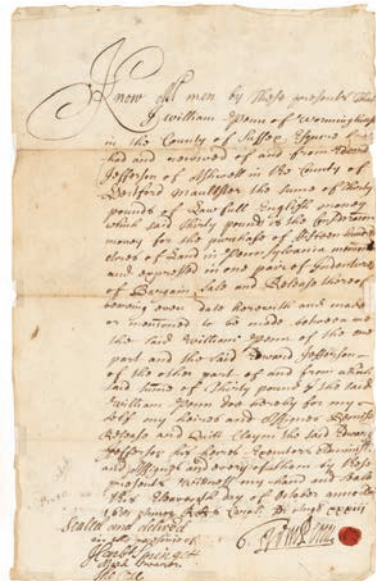 Know all men by these presents that
I William Penn of Worminghurst
in the County of Sussex Esquire have
had and received of and from Edward
Jefferson of Ashwell in the County of
Hertford Maultster the sume of thirty
pounds of Lawfull English money
which said thirty pounds is the
money for the purchase of fifteen hundred
Acres of Land in Pennsylvania mentioned
and expressed in one pair of Indentures
of Bargain Sale and Release thereof
bearing even date herewith and made
or mentioned to be made between me
the said William Penn of the one
part and the said Edward Jefferson
of the other part of and from which
said sume of thirty pounds I the said
William Penn doe hereby for my
selfe my heires and Assignes Remise
Release and Quit Clayme the said Edward
Jefferson his heires Executors
and Assignes and every of them by these
presents Witness my hand and Seale
this day of October
1681
Sealed and delivered
in the presence of
Wm Penn
Harbt Springett